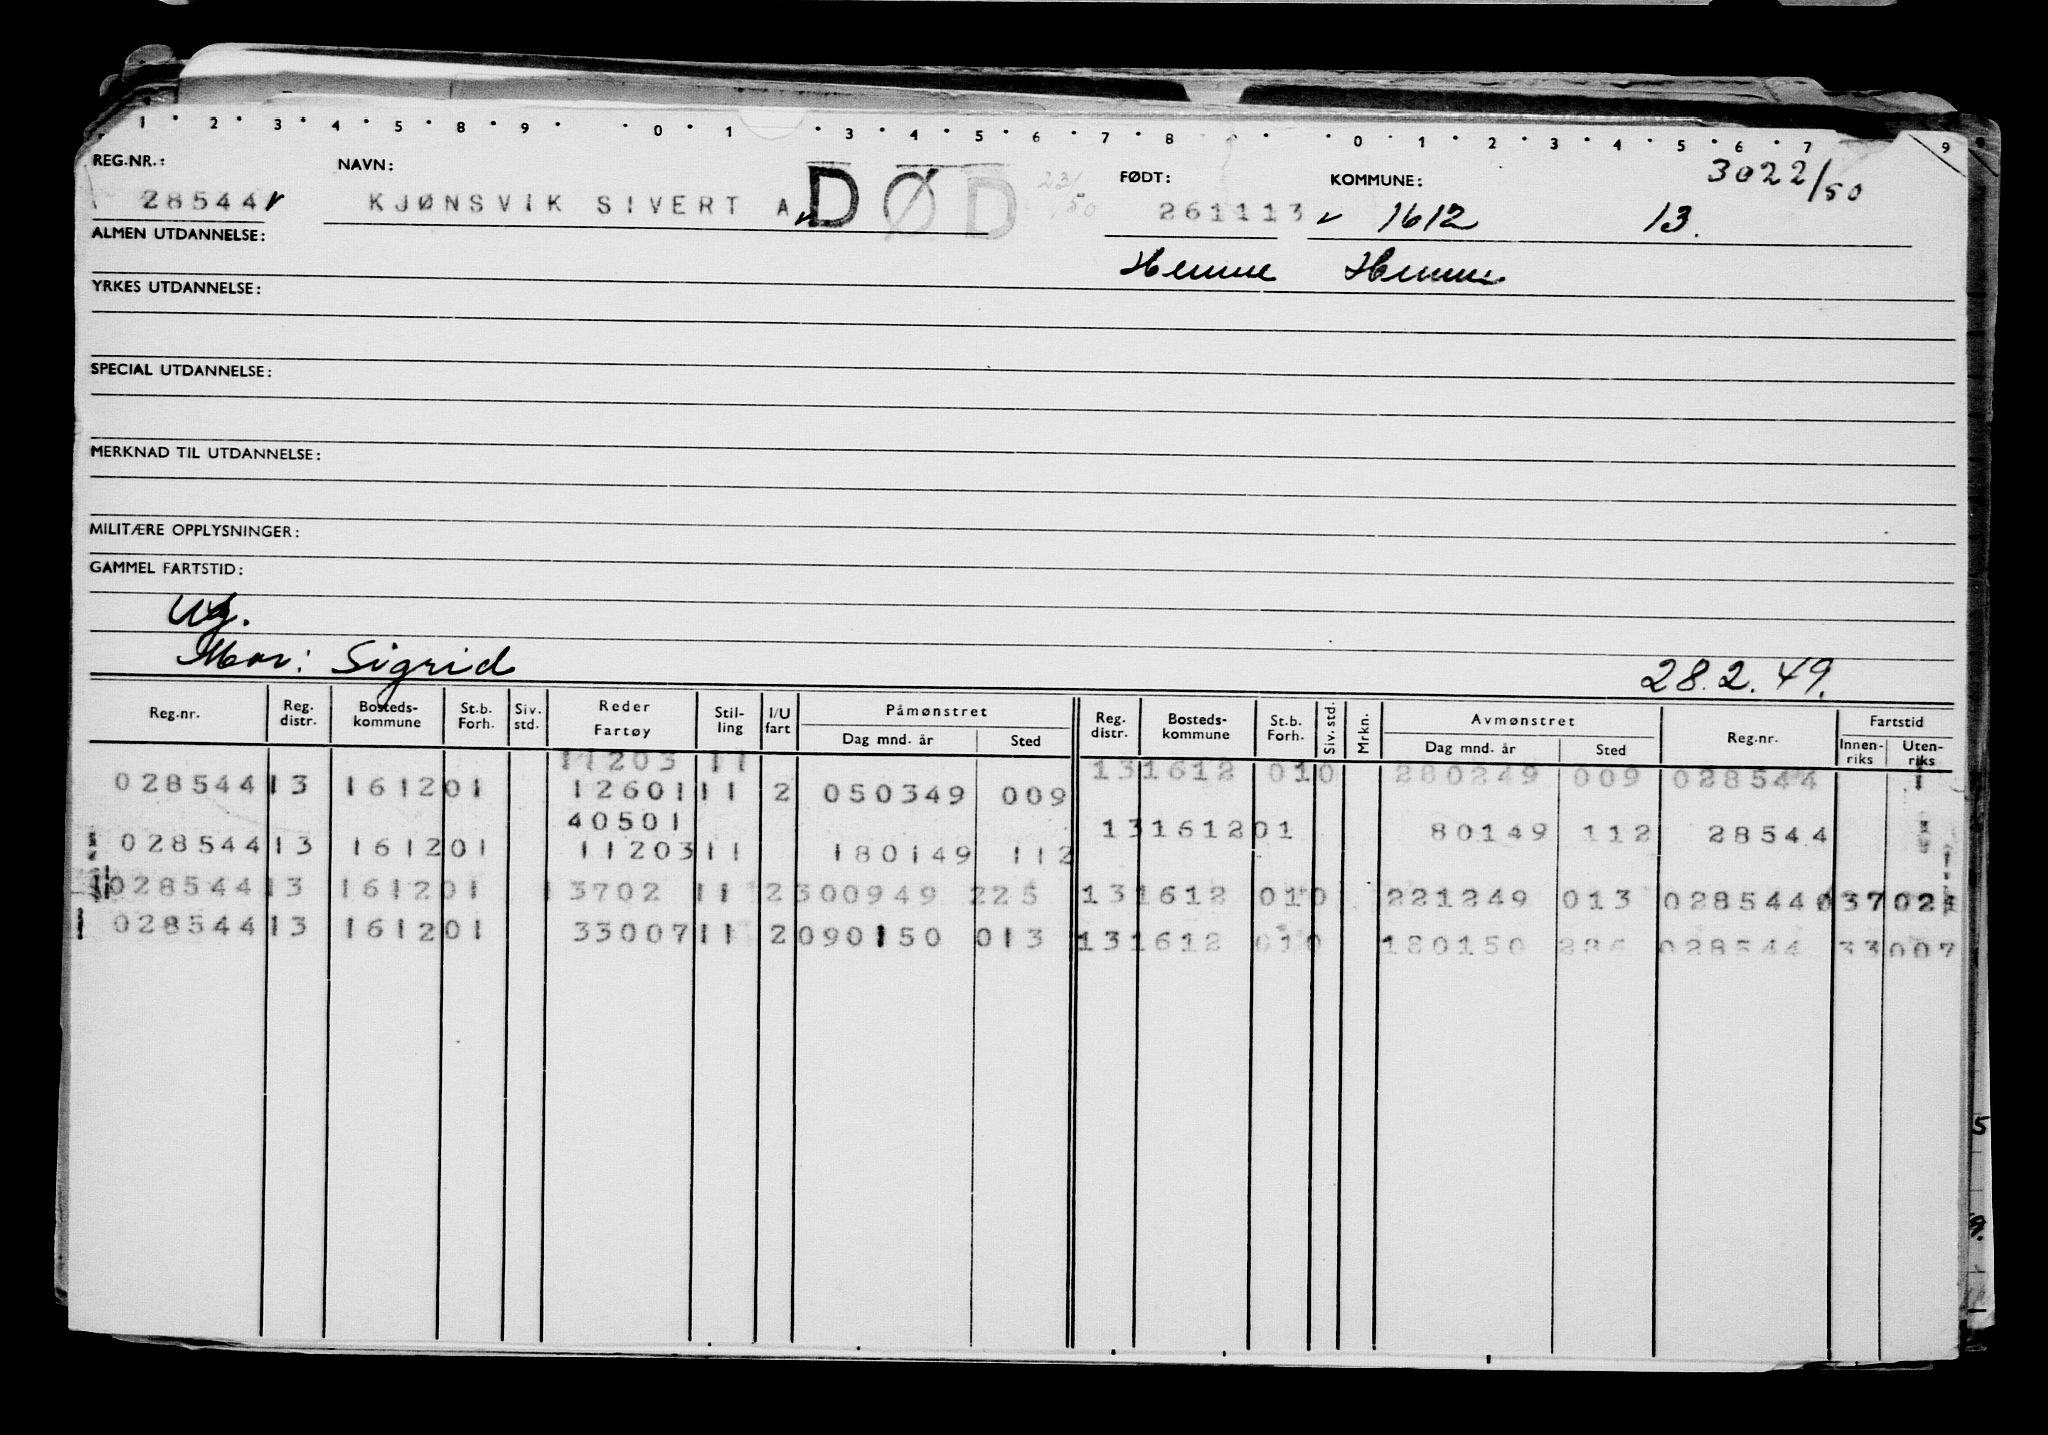 1 2 3 4 5 8 9 0 1 3 4 5 6 7 8 0 1 2 3 4 5 6 7 9
REG.NR.: NAVN: FØDT: KOMMUNE: 3022/50
28544 KJØNSVIK SIVERT A DØD 23/50 261113 1612 13.
ALMEN UTDANNELSE:
Hemne Hemne
YRKES UTDANNELSE:
SPECIAL UTDANNELSE:
MERKNAD TIL UTDANNELSE:
MILITÆRE OPPLYSNINGER:
GAMMEL FARTSTID:
Ug.
Mor: Sigrid 28.2.49.
Reg.nr. Reg. distr. Bosteds-kommune St.b. Forh. Siv. std. Reder Fartøy Stil-ling I/U fart Påmønstret Dag mnd. år Sted Reg. distr. Bosteds-kommune St.b. Forh. Siv. std. Mrkn. Avmønstret Dag mnd. år Sted Reg.nr. Fartstid Innen-riks Uten-riks
11203 11 13 1612 010 280249 009 028544
028544 13 1612 01 12601 11 2 050349 009
40501 13 1612 01 80149 112 28544
028544 13 1612 01 11203 11 180149 112
028544 13 1612 01 13702 11 2 300949 225 13 1612 010 221249 013 028544 03702
028544 13 1612 01 33007 11 2 090150 013 13 1612 010 180150 028544 33007